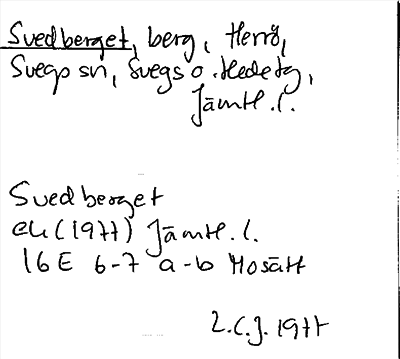 Svedberget, berg, Herrö,
Svegs sn, Svegs o. Hede tg,
Jämtl. l.
Svedberget
ek (1977) Jämtl. l.
16 E 6-7 a-b Mosätt
L.C.J. 1977